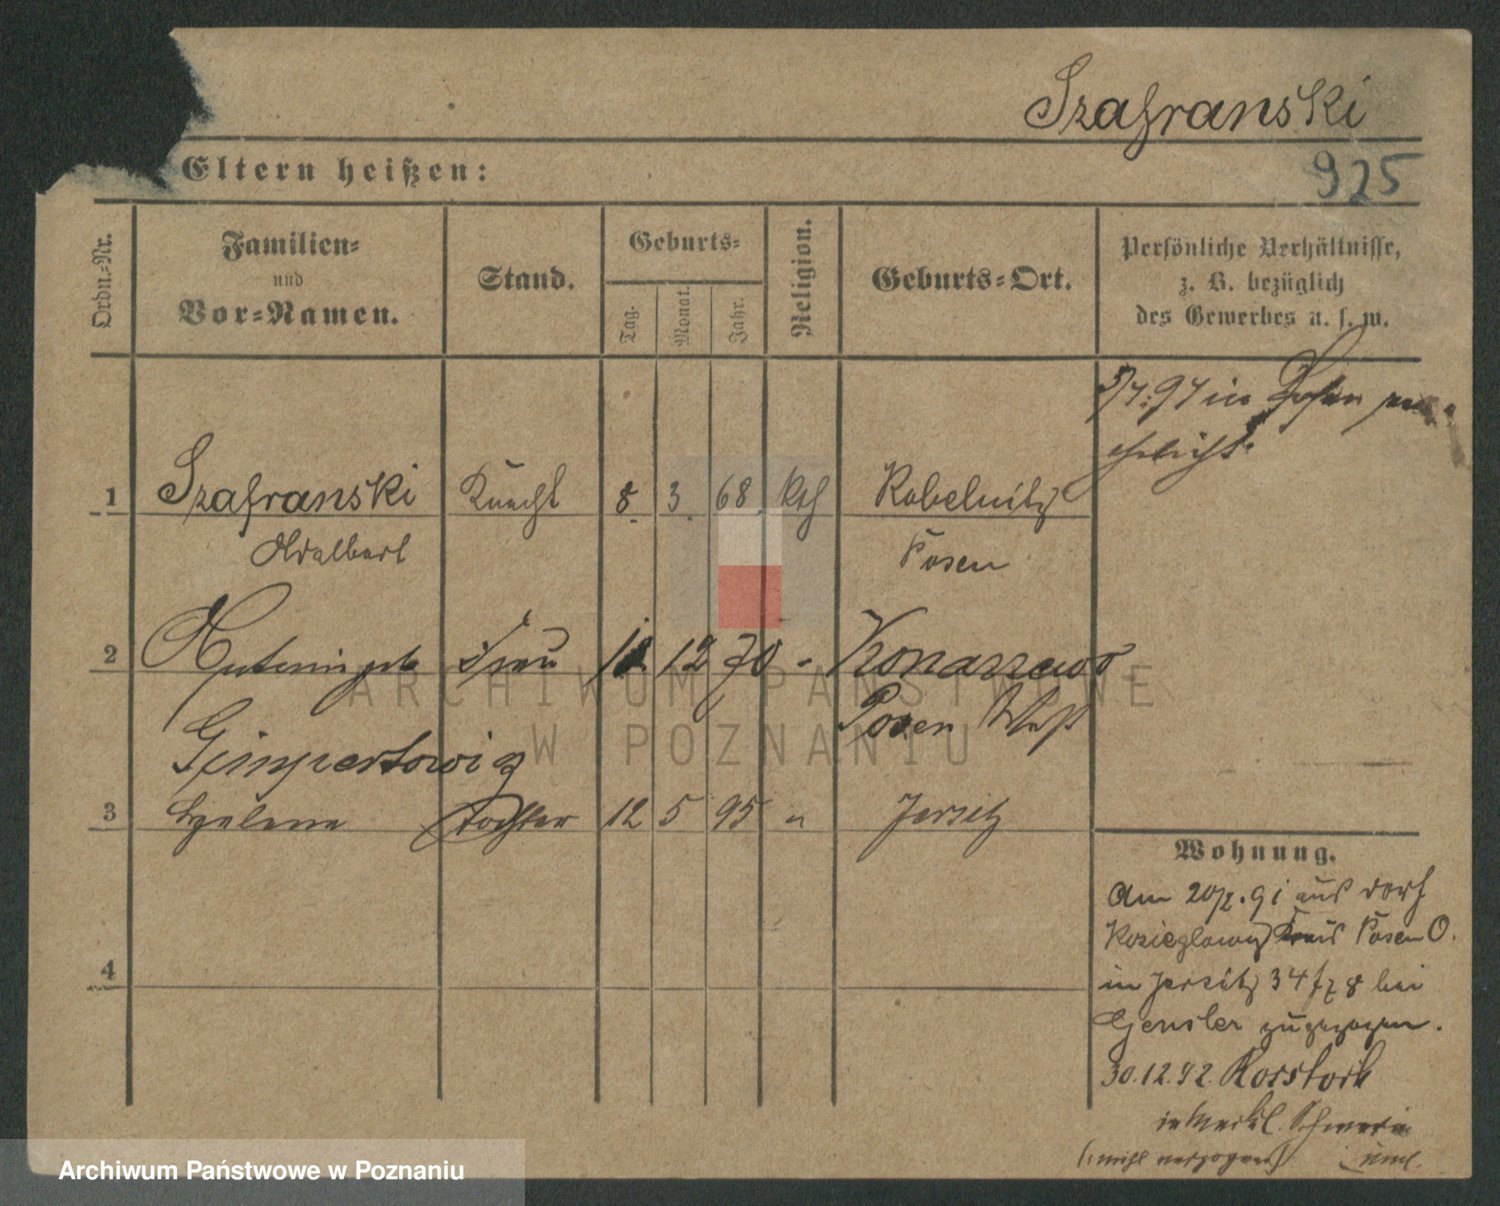 Szafranski
Eltern heißen:
925
Ordn.-Nr.
Familien-
und
Vor-Namen.
Stand.
Geburts-
Tag.
Monat.
Jahr.
Religion.
Geburts-Ort.
Persönliche Verhältnisse,
z. B. bezüglich
des Gewerbes u. s. w.
in Posen ver-
ehelicht.
1 Szafranski Knecht 8. 3. 68. kth Kobelnitz
Adalbert Posen
2 Antonin geb Frau 12 70 " Konarzewo
Posen West
3 Helene Tochter 12 5 95 " Jersitz
4
Wohnung.
Am 20/2.91 aus dorf
Kozieglowy Kreis Posen O.
in Jersitz 34 bei
Gensler zugezogen.
30.12.92. Rorstorf
in Meckl. Schwerin
verzogen
ARCHIWUM PAŃSTWOWE
W POZNANIU
Archiwum Państwowe w Poznaniu